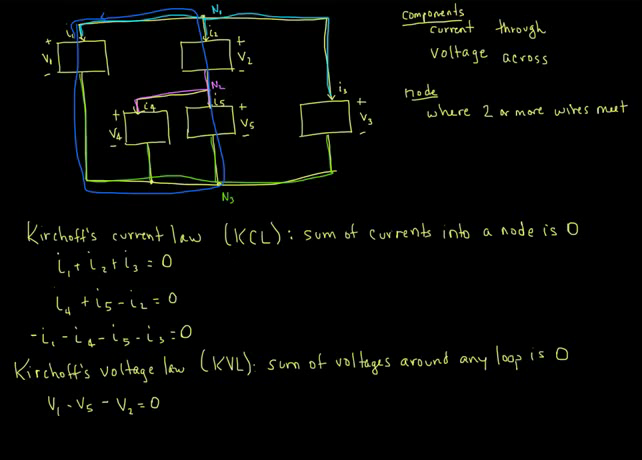 N₁
i₁
i₂
+ V₁ -
+ V₂ -
N₂
i₃
i₄
i₅
+ V₄ -
+ V₅ -
+ V₃ -
N₃
Components
current through
voltage across
node
where 2 or more wires meet
Kirchoff's current law (KCL): sum of currents into a node is 0
i₁ + i₂ + i₃ = 0
i₄ + i₅ - i₂ = 0
-i₁ - i₄ - i₅ - i₃ = 0
Kirchoff's voltage law (KVL): sum of voltages around any loop is 0
V₁ - V₅ - V₂ = 0